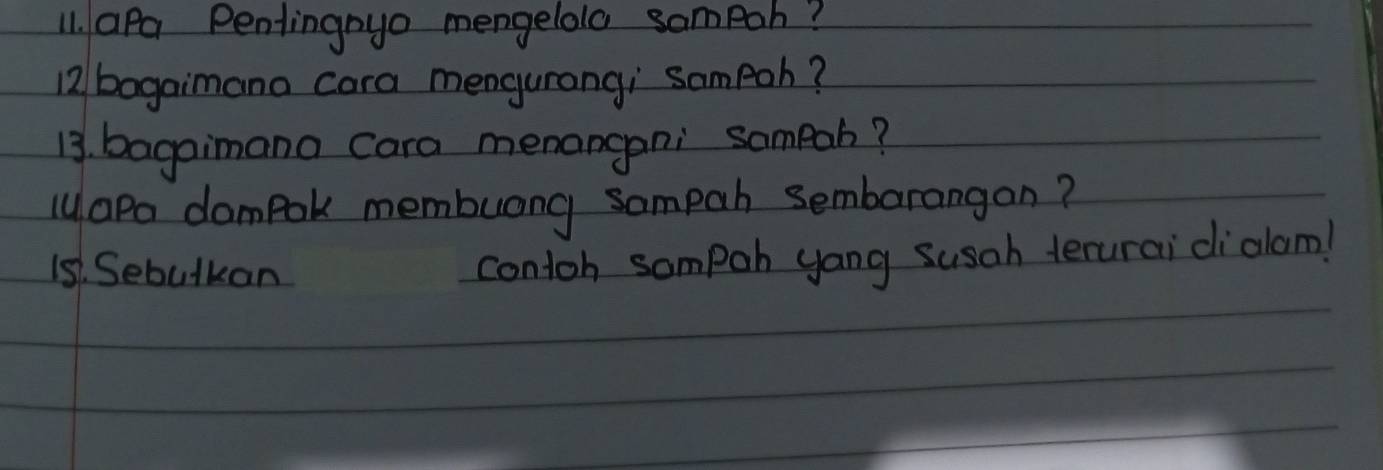 11. apa Pentingnya mengelola sampah?
12. bagaimana cara mengurangi sampah?
13. bagaimana cara menangani sampah?
14. apa dampak membuang sampah sembarangan?
15. Sebutkan contoh sampah yang susah terurai di alam!